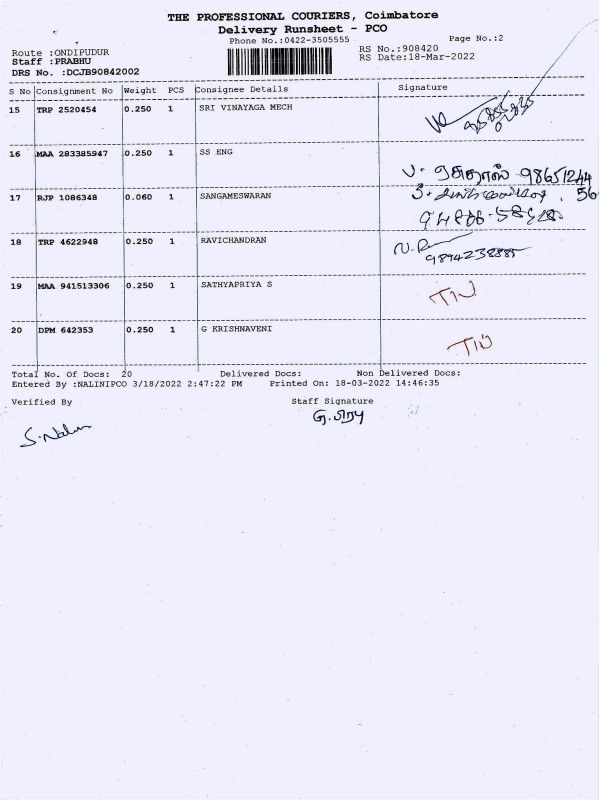 THE PROFESSIONAL COURIERS, Coimbatore
Delivery Runsheet - PCO
Phone No.:0422-3505555 Page No.:2
Route :ONDIPUDUR RS No.:908420
Staff :PRABHU RS Date:18-Mar-2022
DRS No. :DCJB90842002
S No Consignment No Weight PCS Consignee Details Signature
15 TRP 2520454 0.250 1 SRI VINAYAGA MECH
16 MAA 283385947 0.250 1 SS ENG
17 RJP 1086348 0.060 1 SANGAMESWARAN
18 TRP 4622948 0.250 1 RAVICHANDRAN
9894238885
19 MAA 941513306 0.250 1 SATHYAPRIYA S
20 DPM 642353 0.250 1 G KRISHNAVENI
Total No. Of Docs: 20 Delivered Docs: Non Delivered Docs:
Entered By :NALINIPCO 3/18/2022 2:47:22 PM Printed On: 18-03-2022 14:46:35
Verified By Staff Signature
S.Nalini